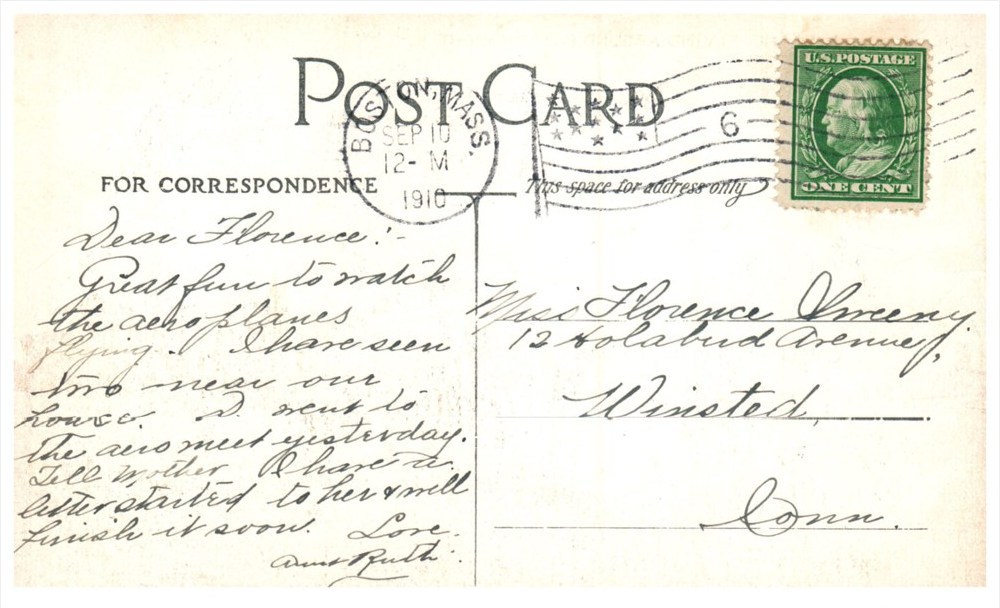 POST CARD
BOSTON, MASS.
SEP 10
12- M
1910
6
U.S. POSTAGE
ONE CENT
FOR CORRESPONDENCE
This space for address only
Dear Florence:-
Great fun to watch
the aeroplanes
flying. I have seen
two near our
house. I went to
the aero meet yesterday.
Tell Mother I have a
letter started to her & will
finish it soon. Love
Aunt Ruth.
Miss Florence
12 Holabird Avenue,
Winsted,
Conn.